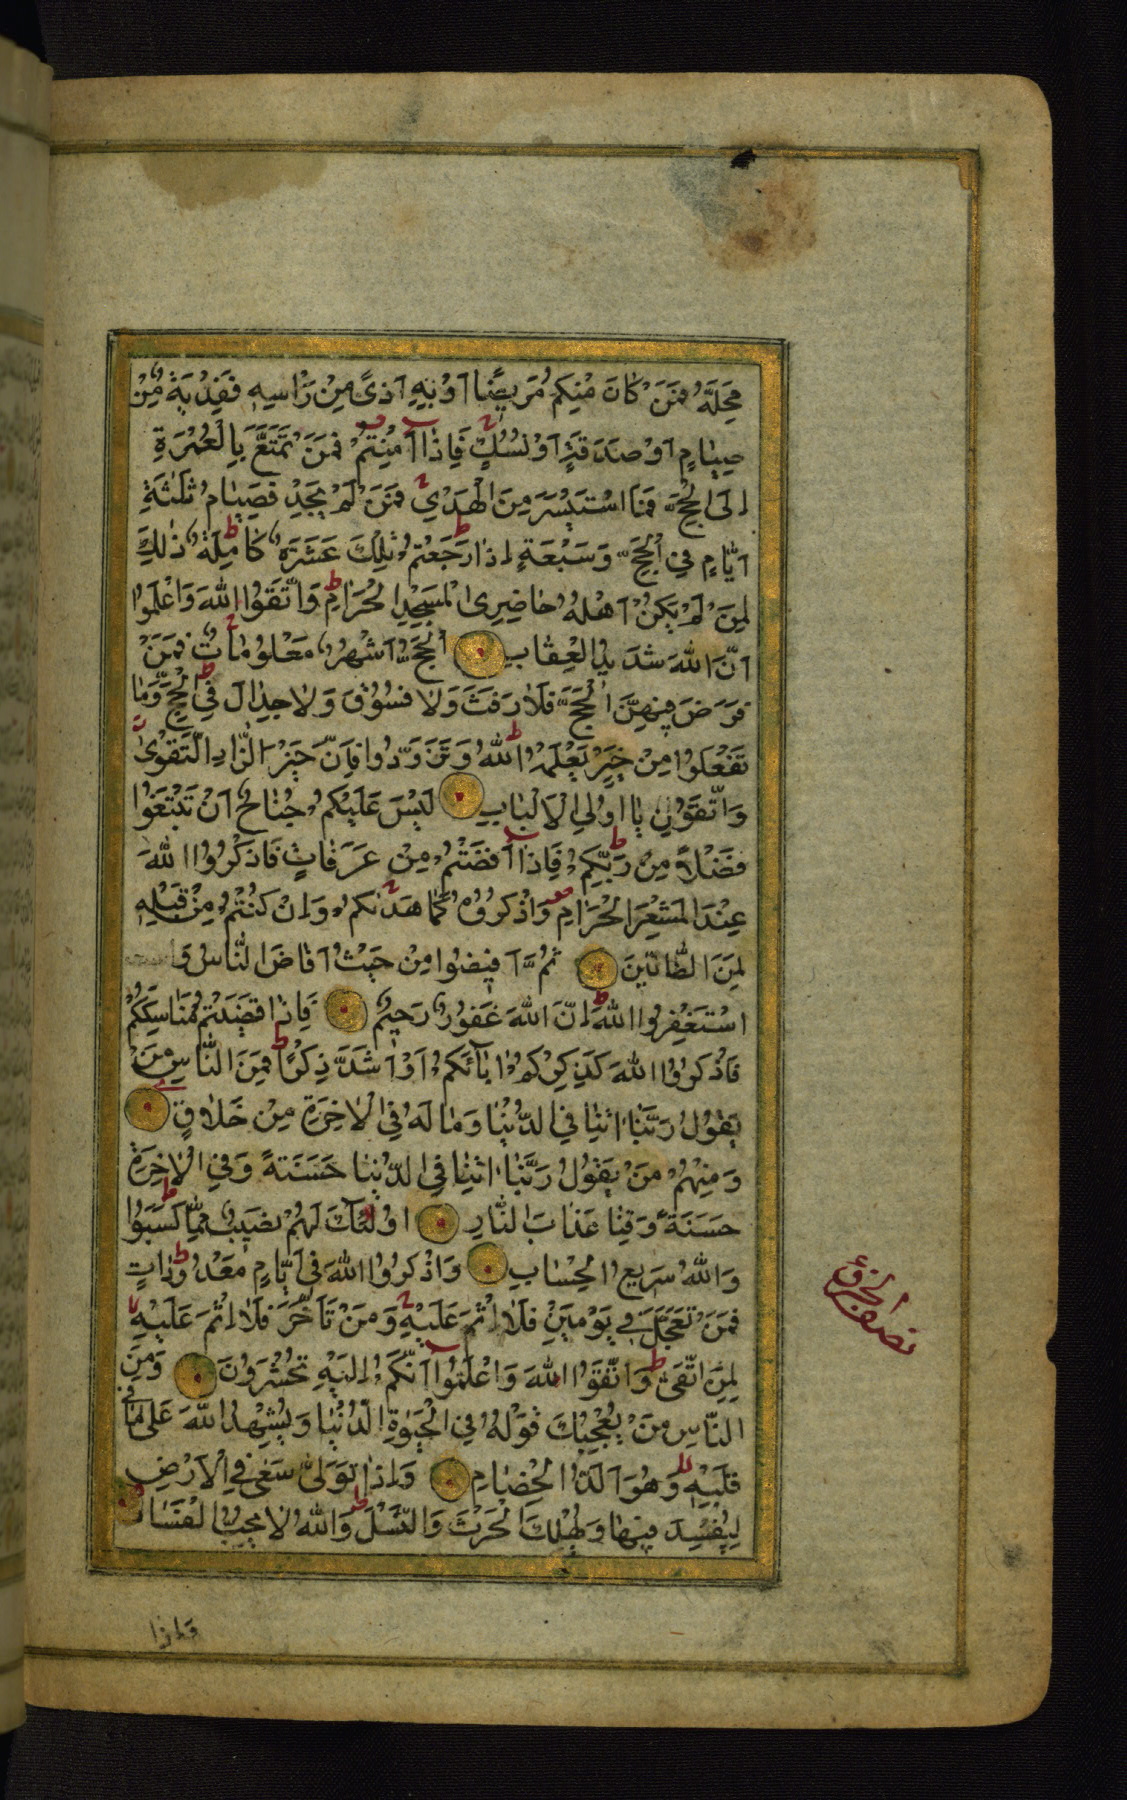 مَحِلَّهُ فَمَنْ كَانَ مِنْكُمْ مَرِيضًا اَوْ بِهِ اَذىً مِنْ رَاْسِهِ فَفِدْيَةٌ مِنْ
صِيَامٍ اَوْ صَدَقَةٍ اَوْ نُسُكٍ فَاِذَا اَمِنْتُمْ فَمَنْ تَمَتَّعَ بِالْعُمْرَةِ
اِلَى الْحَجِّ فَمَا اسْتَيْسَرَ مِنَ الْهَدْيِ فَمَنْ لَمْ يَجِدْ فَصِيَامُ ثَلٰثَةِ
اَيَّامٍ فِي الْحَجِّ وَسَبْعَةٍ اِذَا رَجَعْتُمْ تِلْكَ عَشَرَةٌ كَامِلَةٌ ذٰلِكَ
لِمَنْ لَمْ يَكُنْ اَهْلُهُ حَاضِرِى الْمَسْجِدِ الْحَرَامِ وَاتَّقُوا اللّٰهَ وَاعْلَمُوا
اَنَّ اللّٰهَ شَدِيدُ الْعِقَابِ اَلْحَجُّ اَشْهُرٌ مَعْلُومَاتٌ فَمَنْ
فَرَضَ فِيهِنَّ الْحَجَّ فَلَا رَفَثَ وَلَا فُسُوقَ وَلَا جِدَالَ فِي الْحَجِّ وَمَا
تَفْعَلُوا مِنْ خَيْرٍ يَعْلَمْهُ اللّٰهُ وَتَزَوَّدُوا فَاِنَّ خَيْرَ الزَّادِ التَّقْوٰى
وَاتَّقُونِ يَا اُولِي الْاَلْبَابِ لَيْسَ عَلَيْكُمْ جُنَاحٌ اَنْ تَبْتَغُوا
فَضْلًا مِنْ رَبِّكُمْ فَاِذَا اَفَضْتُمْ مِنْ عَرَفَاتٍ فَاذْكُرُوا اللّٰهَ
عِنْدَ الْمَشْعَرِ الْحَرَامِ وَاذْكُرُوهُ كَمَا هَدٰىكُمْ وَاِنْ كُنْتُمْ مِنْ قَبْلِهِ
لَمِنَ الضَّالِّينَ ثُمَّ اَفِيضُوا مِنْ حَيْثُ اَفَاضَ النَّاسُ وَ
اسْتَغْفِرُوا اللّٰهَ اِنَّ اللّٰهَ غَفُورٌ رَحِيمٌ فَاِذَا قَضَيْتُمْ مَنَاسِكَكُمْ
فَاذْكُرُوا اللّٰهَ كَذِكْرِكُمْ اٰبَآئَكُمْ اَوْ اَشَدَّ ذِكْرًا فَمِنَ النَّاسِ مَنْ
يَقُولُ رَبَّنَا اٰتِنَا فِي الدُّنْيَا وَمَا لَهُ فِي الْاٰخِرَةِ مِنْ خَلَاقٍ
وَمِنْهُمْ مَنْ يَقُولُ رَبَّنَا اٰتِنَا فِي الدُّنْيَا حَسَنَةً وَفِي الْاٰخِرَةِ
حَسَنَةً وَقِنَا عَذَابَ النَّارِ اُولٰٓئِكَ لَهُمْ نَصِيبٌ مِمَّا كَسَبُوا
وَاللّٰهُ سَرِيعُ الْحِسَابِ وَاذْكُرُوا اللّٰهَ فِي اَيَّامٍ مَعْدُودَاتٍ
فَمَنْ تَعَجَّلَ فِي يَوْمَيْنِ فَلَا اِثْمَ عَلَيْهِ وَمَنْ تَاَخَّرَ فَلَا اِثْمَ عَلَيْهِ
لِمَنِ اتَّقٰى وَاتَّقُوا اللّٰهَ وَاعْلَمُوا اَنَّكُمْ اِلَيْهِ تُحْشَرُونَ وَمِنَ
النَّاسِ مَنْ يُعْجِبُكَ قَوْلُهُ فِي الْحَيٰوةِ الدُّنْيَا وَيُشْهِدُ اللّٰهَ عَلٰى مَا فِي
قَلْبِهِ وَهُوَ اَلَدُّ الْخِصَامِ وَاِذَا تَوَلّٰى سَعٰى فِي الْاَرْضِ
لِيُفْسِدَ فِيهَا وَيُهْلِكَ الْحَرْثَ وَالنَّسْلَ وَاللّٰهُ لَا يُحِبُّ الْفَسَادَ
نصف الحزب
واذا